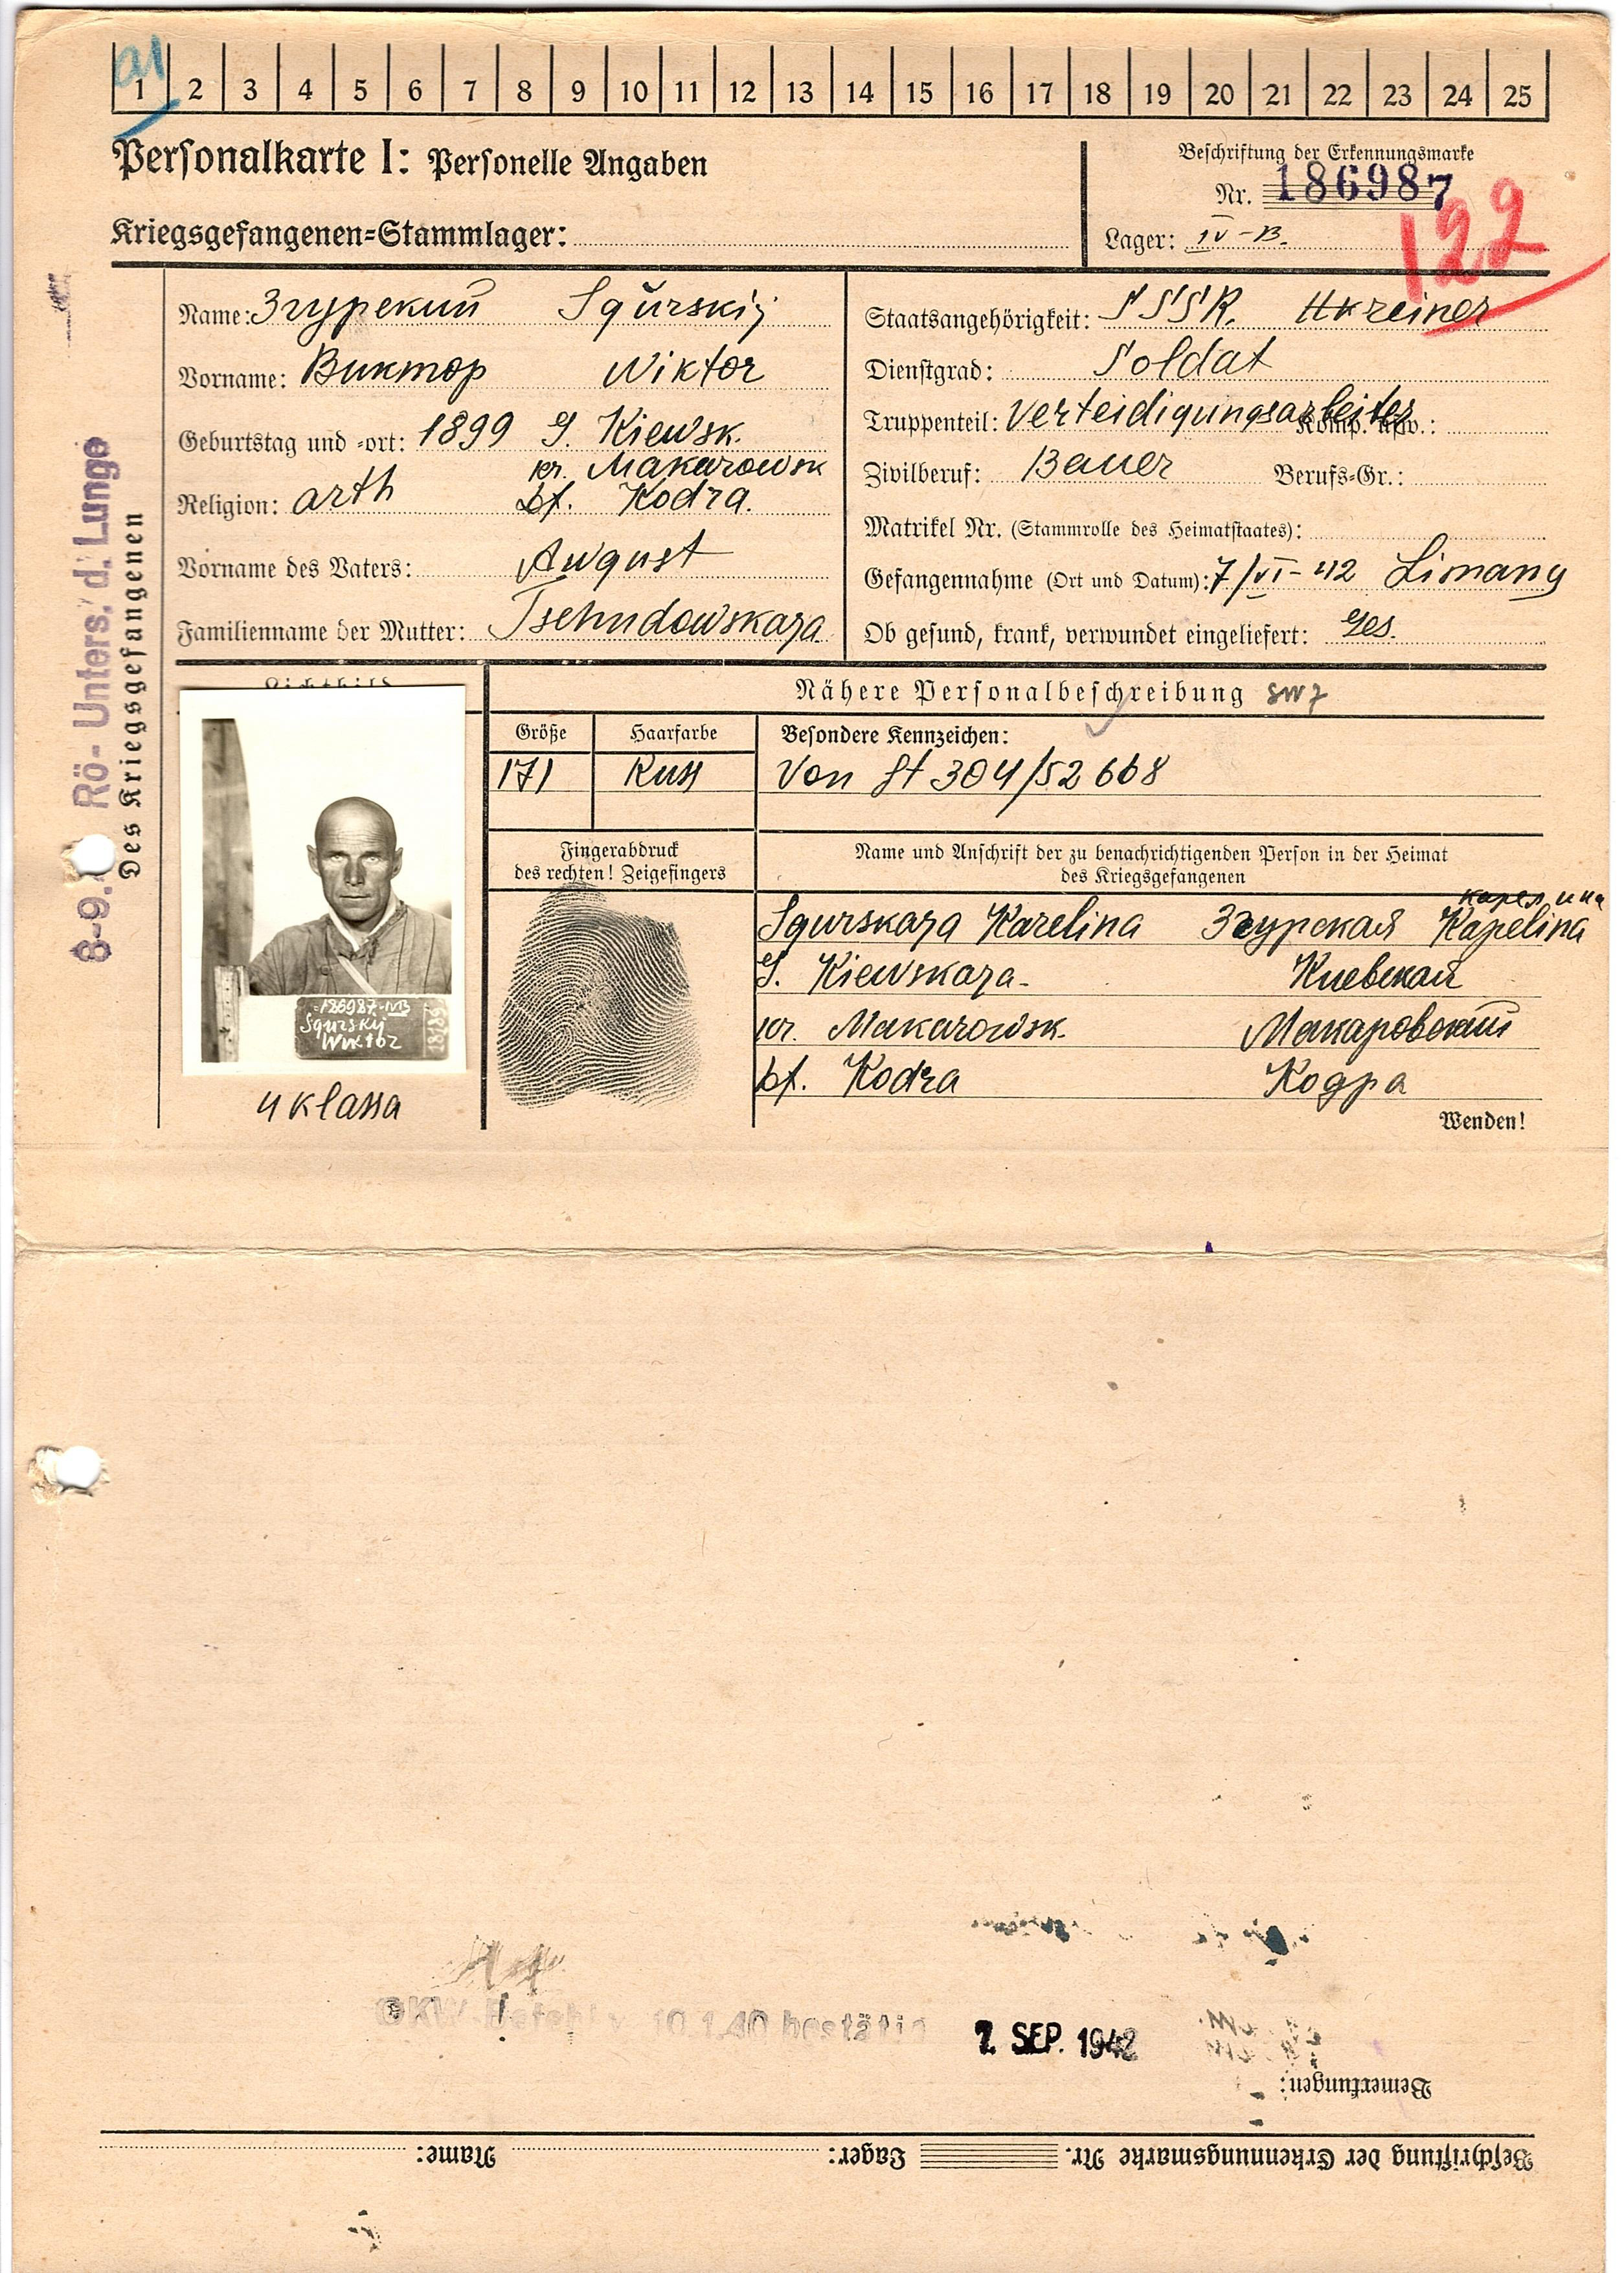 a1
1 2 3 4 5 6 7 8 9 10 11 12 13 14 15 16 17 18 19 20 21 22 23 24 25
Personalkarte I: Personelle Angaben
Beschriftung der Erkennungsmarke
Nr. 186987
122
Kriegsgefangenen=Stammlager:
Lager: IV-B.
Name: Згурский Sgurskij
Vorname: Виктор Wiktor
Geburtstag und =ort: 1899 G. Kiewsk.
kr. Makarowsk
Religion: orth bf. Kodra.
Vorname des Vaters: August
Familienname der Mutter: Tschudowskaja
Staatsangehörigkeit: SSSR. Ukreiner
Dienstgrad: Soldat
Truppenteil: Verteidigungsarbeiter Komp. usw.:
Zivilberuf: Bauer Berufs=Gr.:
Matrikel Nr. (Stammrolle des Heimatstaates):
Gefangennahme (Ort und Datum): 7/VI-42 Limany
Ob gesund, krank, verwundet eingeliefert: ges.
Rö-Unters. d. Lunge
Des Kriegsgefangenen
8-9.
Lichtbild
186987-IVB
Sgurskij
Wiktor
4 klassa
Nähere Personalbeschreibung
Größe Haarfarbe Besondere Kennzeichen:
171 Russ Von St 304/52668
Fingerabdruck
des rechten! Zeigefingers
Name und Anschrift der zu benachrichtigenden Person in der Heimat
des Kriegsgefangenen
карелина
Sgurskaja Karelina Згурская Kapelina
G. Kiewskaja- Киевская
kr. Makarowsk. Макаровский
bf. Kodra Кодра
Wenden!
OKW-Befehl v. 10.1.40 bestätigt
7. SEP. 1942
Bemerkungen:
Beschriftung der Erkennungsmarke Nr. Lager: Name: